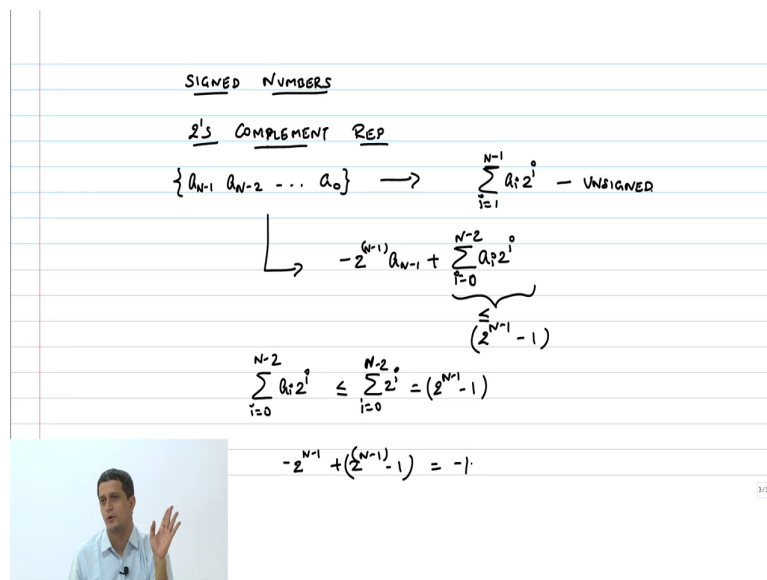 SIGNED NUMBERS
2's COMPLEMENT REP
{a_{N-1} a_{N-2} --- a_0} → \sum_{i=1}^{N-1} a_i 2^i - UNSIGNED
-2^{(N-1)} a_{N-1} + \sum_{i=0}^{N-2} a_i 2^i
≤
(2^{N-1} - 1)
\sum_{i=0}^{N-2} a_i 2^i ≤ \sum_{i=0}^{N-2} 2^i = (2^{N-1} - 1)
-2^{N-1} + (2^{(N-1)} - 1) = -1